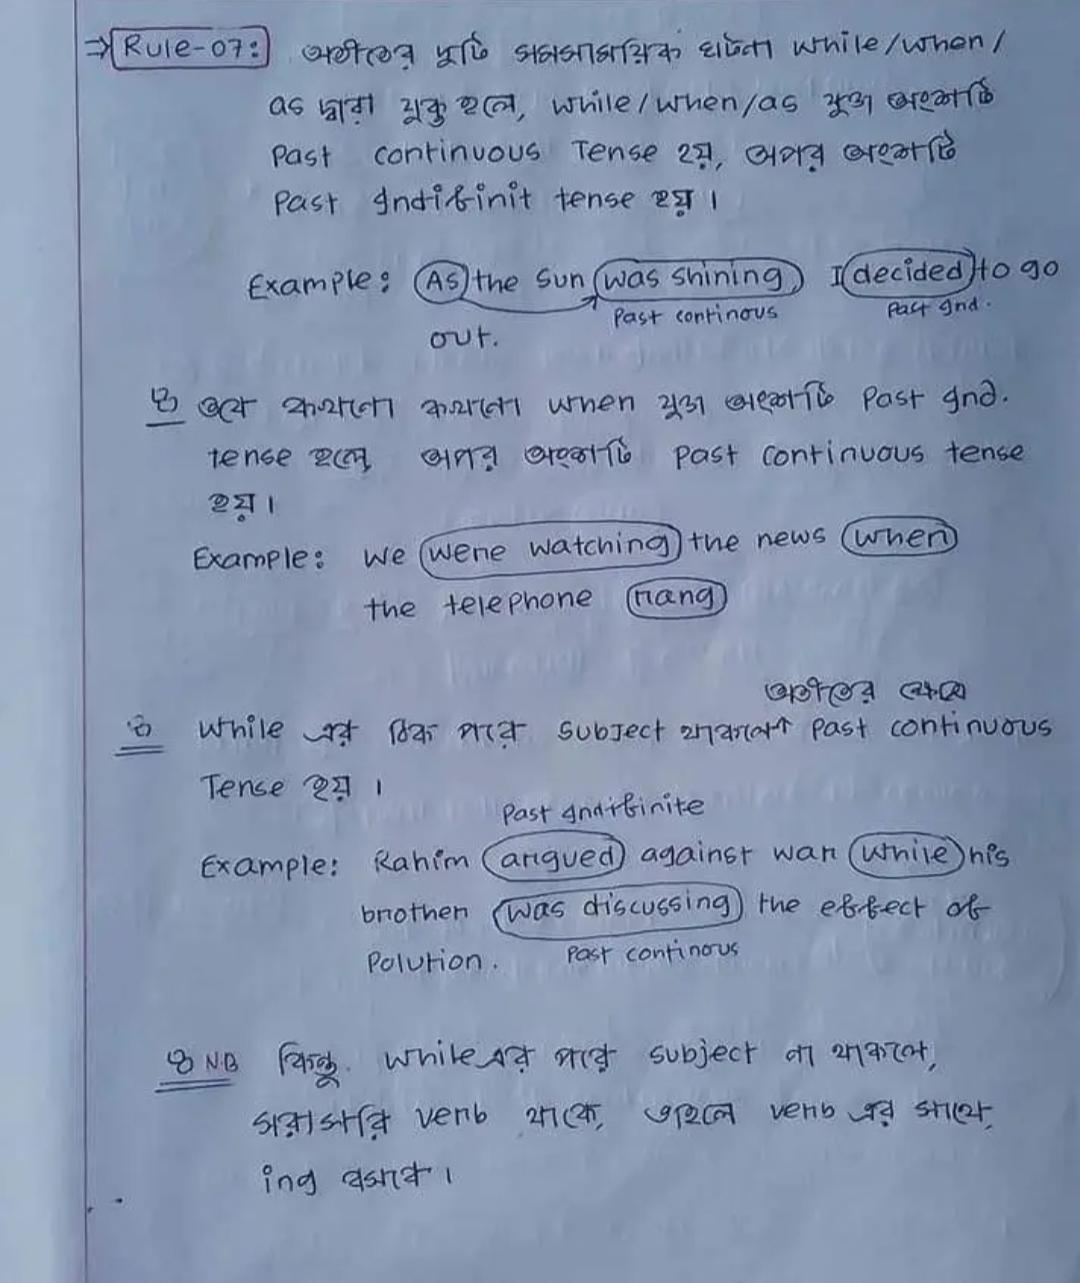 ⇒ Rule-07: অতীতের দুটি সমসাময়িক ঘটনা while/when/
as দ্বারা যুক্ত হলে, while/when/as যুক্ত অংশটি
Past continuous Tense হয়, অপর অংশটি
Past Indifinit tense হয়।
Example: As the sun was shining, I decided to go
Past continous Past Ind.
out.
তবে কখনো কখনো when যুক্ত অংশটি Past Ind.
tense হলে অপর অংশটি Past continuous tense
হয়।
Example: we were watching the news when
the telephone rang
অতীতের ক্ষেত্রে
while এর ঠিক পরে subject থাকলে↑ Past continuous
Tense হয়।
Past Indifinite
Example: Rahim argued against war while his
brother was discussing the effect of
Polution. Past continous
N.B কিন্তু while এর পরে subject না থাকলে,
সরাসরি verb থাকে, তাহলে verb এর সাথে
ing বসবে।